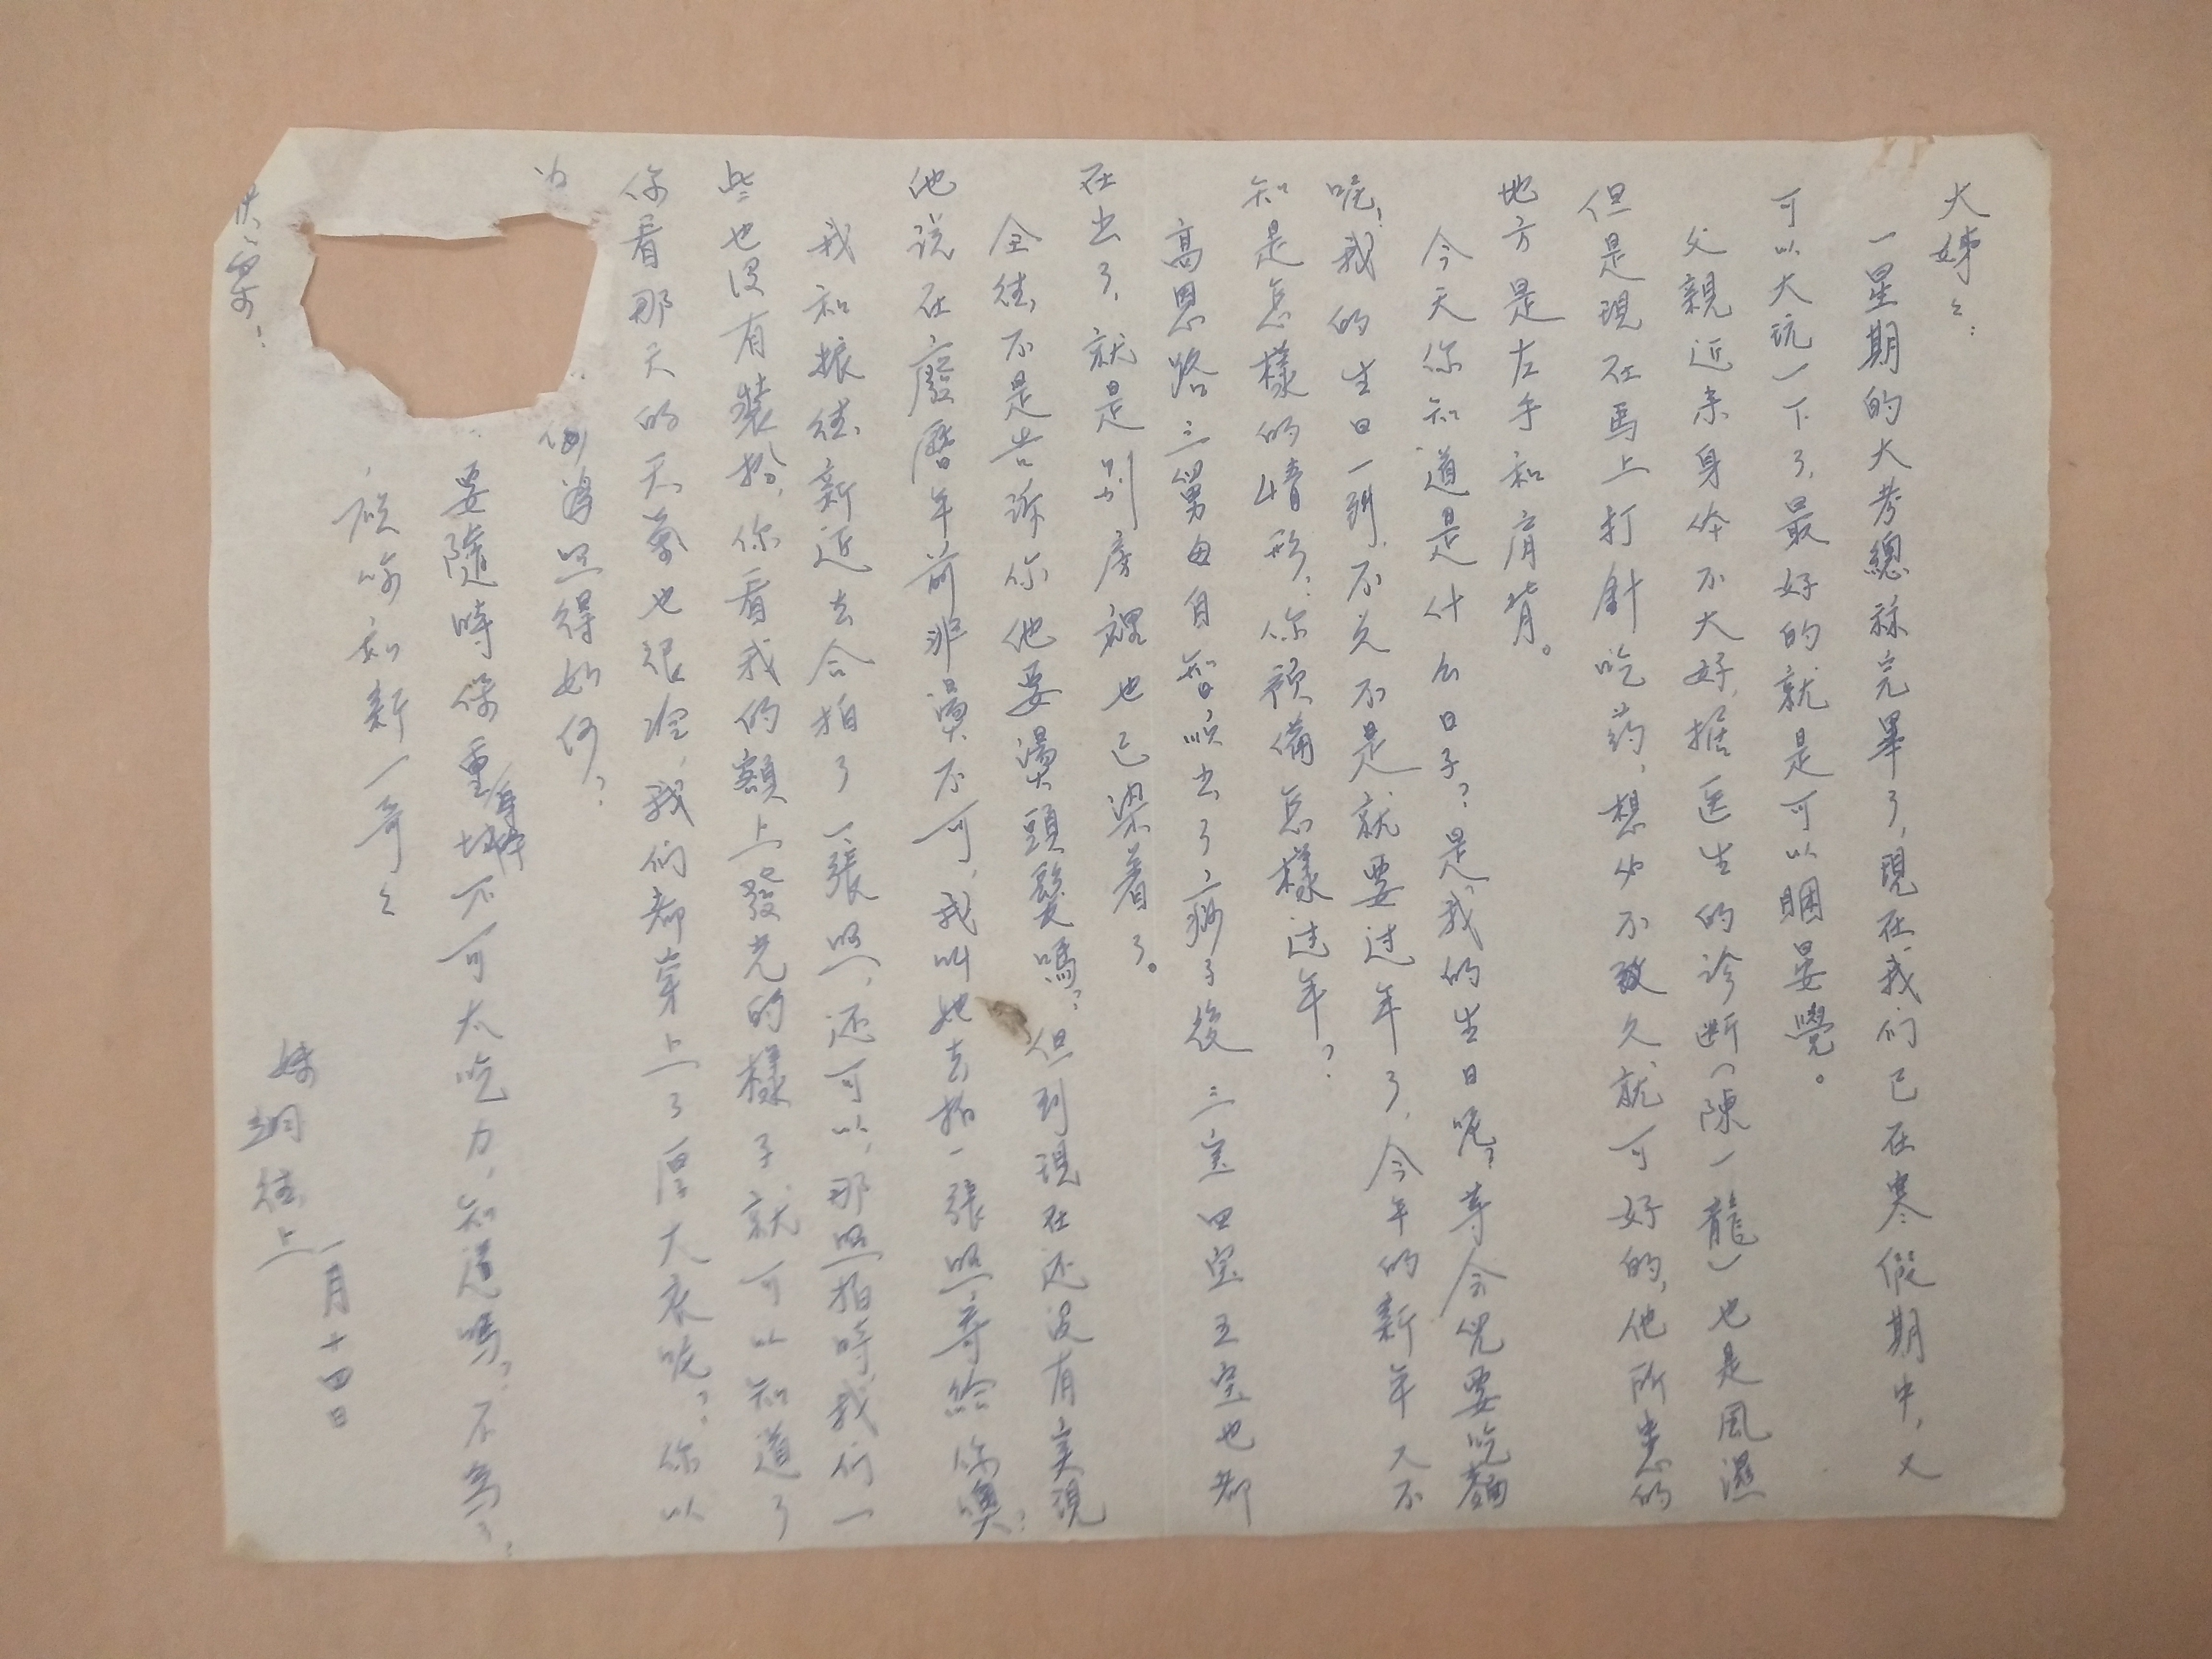 大姊々：
一星期的大考總祘完畢了，現在我们已在寒假期中，又
可以大玩一下了，最好的就是可以睏晏覺。
父親近来身体不大好，据医生的诊断（陳一龍）也是風濕
但是現在馬上打針吃药，想必不致久就可好的，他所患的
地方是左手和肩背。
今天你知道是什么日子？是我的生日呢，等今兒要吃麵
呢！我的生日一到，不久不是就要过年了，今年的新年又不
知是怎樣的情形，你預備怎樣过年？
高恩路三舅母自智 出了痧子後三宝四宝五宝也都
在出了，就是别房裡也已染着了。
全 不是告訴你他要燙頭髮嗎？但到現在还没有实現
他说在廢曆年前非燙不可，我叫她去拍一張照寄给你噢！
我和振 新近去合拍了一張照，还可以，那照拍時，我们一
些也没有装扮，你看我的額上發光的樣子就可以知道了
你看那天的天氣也很冷，我们都穿上了厚大衣呢？你以
为 照得如何？
要隨時保重身體 不可太吃力，知道嗎？不寫了！
祝你和新一哥々
快樂！
妹 上
一月十四日